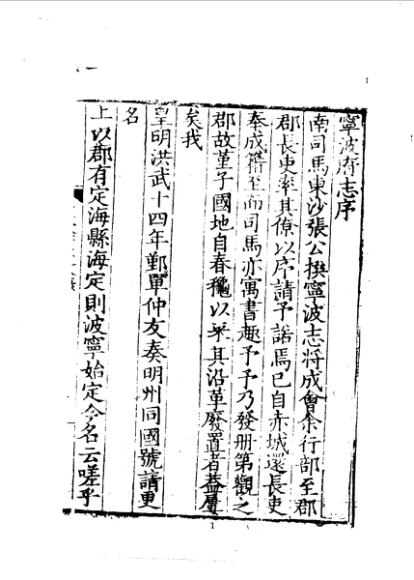 寧波府志序
南司馬東沙張公撰寧波志將成會余行部至郡
郡長吏率其僚以序請予諾焉已自赤城還長吏
奉成籍至而司馬亦寓書趣予予乃發册第觀之
郡故堇子國地自春秋以來其沿革廢置者葢屢
矣我
皇明洪武十四年鄞單仲友奏明州同國號請更
名
上以郡有定海縣海定則波寧始定今名云嗟乎
1